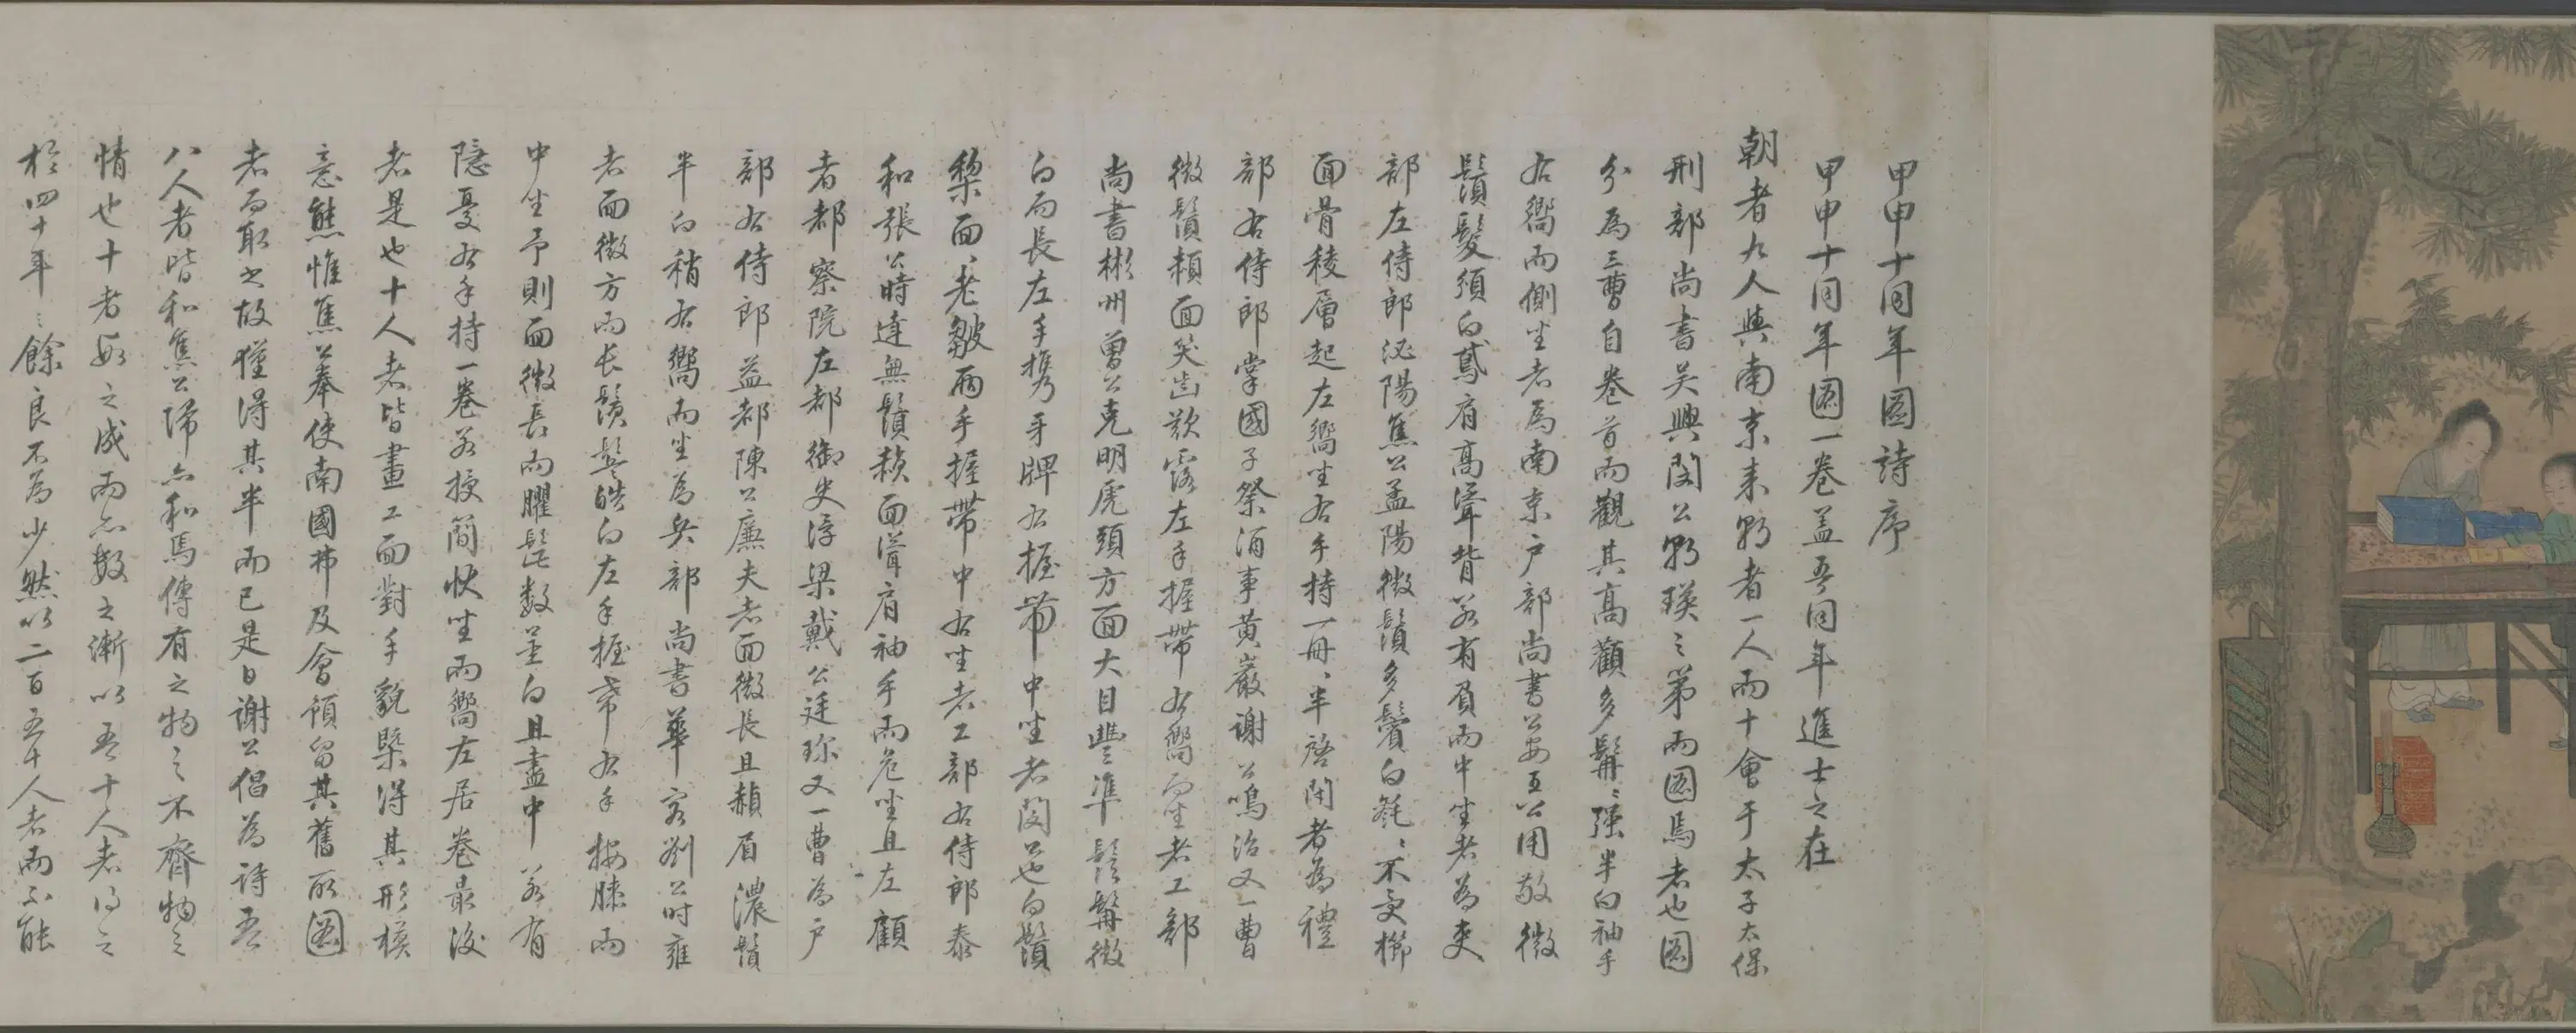 甲申十同年圖詩序
甲申十同年圖一卷盖吾同年進士之在
朝者九人與南京来朝者一人而十會于太子太保
刑部尚書吴興閔公朝瑛之第而圖焉者也圖
分為三曹自卷首而觀其高顴多髯髯强半白袖手
右嚮而側坐者為南京户部尚書公安王公用敬微
鬚髮須白鳶肩髙聳背若有負而中坐者為吏
部左侍郎泌陽焦公孟陽微鬚多鬢白毿毿不受櫛
面骨稜層起左嚮坐右手持一冊半啓閉者為禮
部右侍郎掌國子祭酒事黄巖谢公鳴治又一曹
微鬚頳面笑齒欲露左手握帶右嚮而坐者工部
尚書彬州曾公克明虎頭方面大目豐準鬚髯微
白而長左手携牙牌右握帶中坐者閔公也白鬚
黎面老皺兩手握帶中右坐者工部右侍郎泰
和張公時達無鬚頳面聳肩袖手而危坐且左顧
者都察院左都御史浮梁戴公廷珍又一曹為户
部右侍郎益都陳公廉夫者面微長且赬眉濃鬚
半白稍右嚮而坐為兵部尚書華容劉公时雍
者面微方而长鬚髮皓白左手握带右手按膝而
中坐予則面微長而臞髭数莖白且盡中若有
隱憂右手持一卷若授簡状坐而嚮左居卷最後
者是也十人者皆畫工面對手貌槩得其形模
意態惟焦公奉使南國弗及會預留其舊所圖
者而取之故僅得其半而已是日謝公倡為詩吾
八人者皆和焦公歸亦和焉傳有之物之不齊物之
情也十者数之成而亦数之漸以吾十人者得之
於四十年之餘良不為少然以二百五十人者而不能